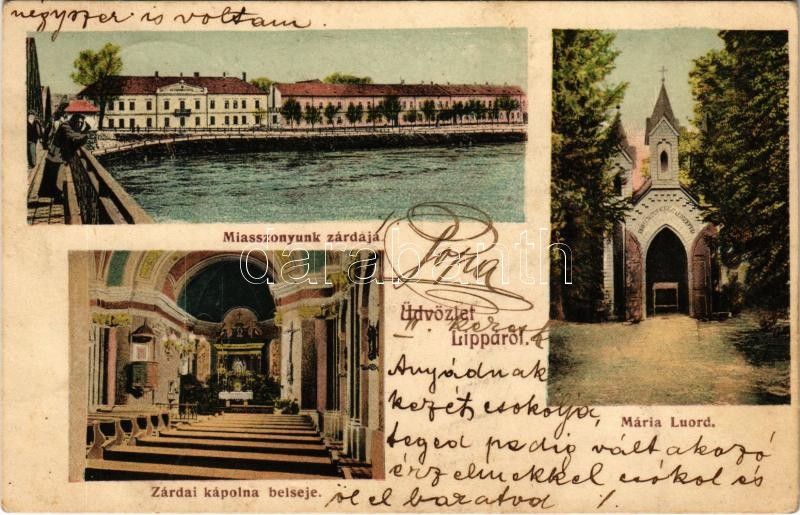 négyszer is voltam.
Miasszonyunk zárdája
darabanth
Üdvözlet
Lippáról.
Anyádnak
kezét csókolja,
téged pedig váltakozó
érzelmekkel csókol és
ölel barátod
Mária Luord.
Zárdai kápolna belseje.